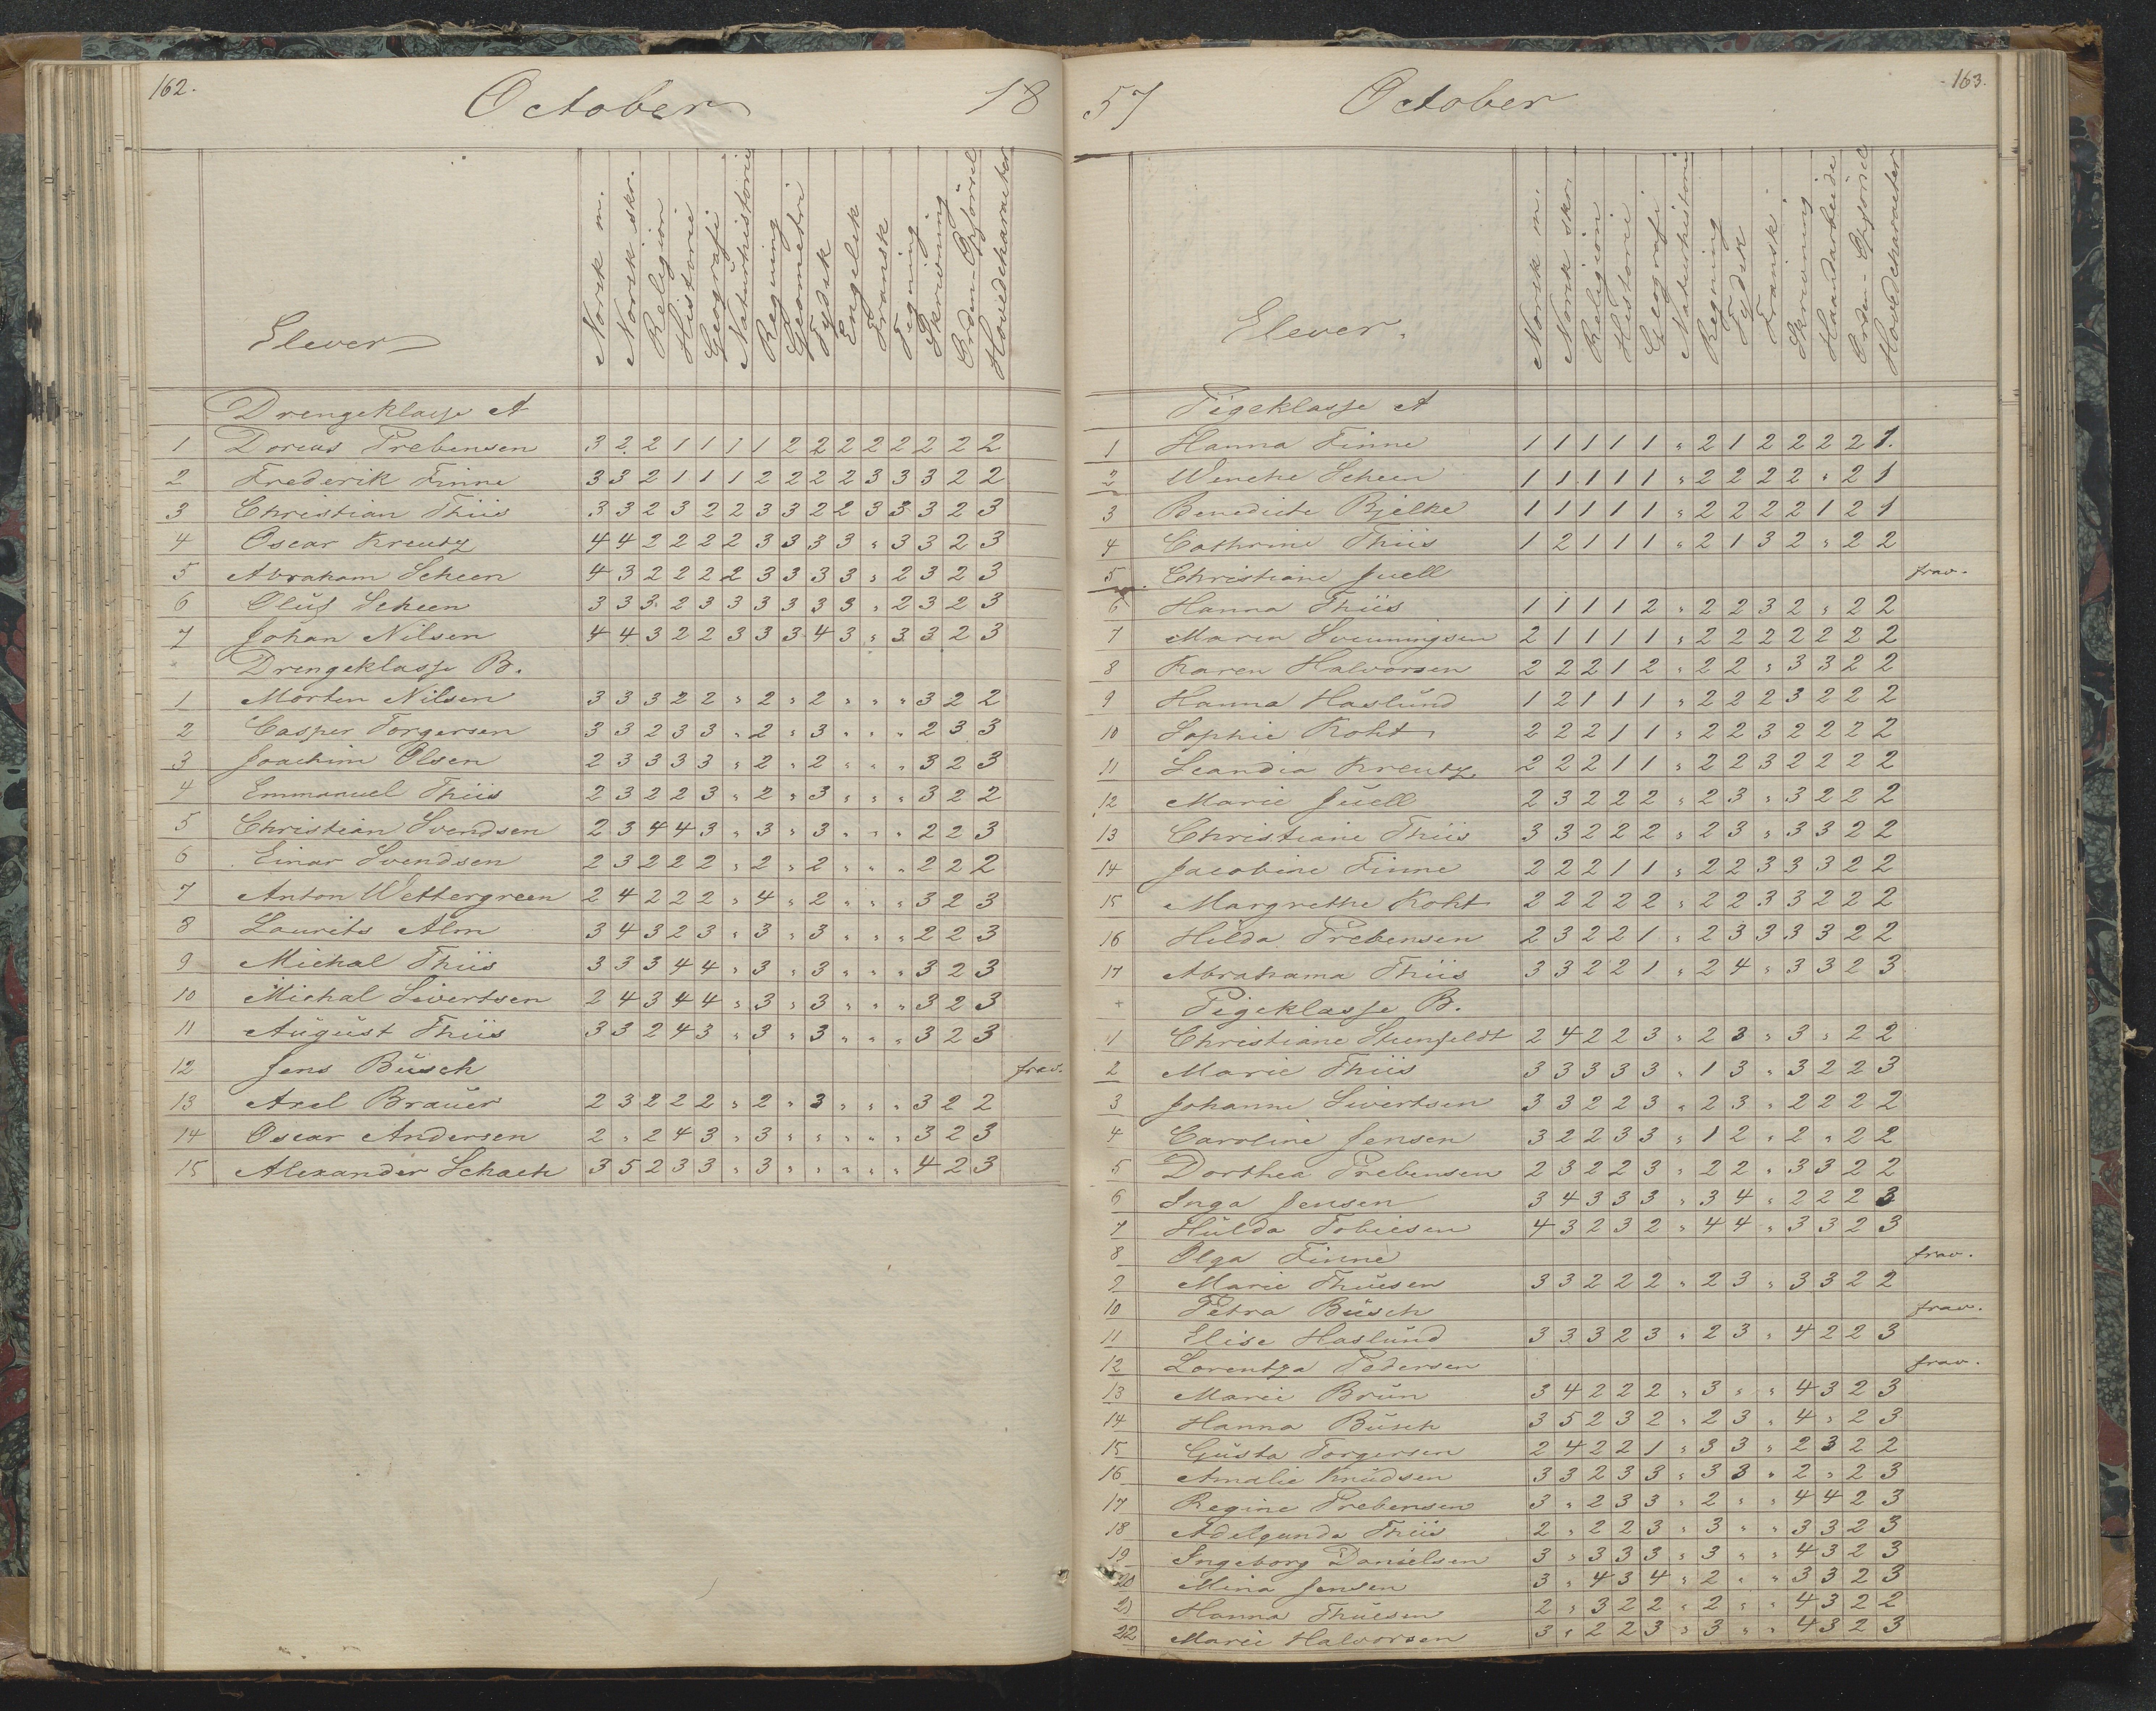 162.
October 18
Elever
Norsk m.
Norsk skr.
Religion
Historie
Geografi
Naturhistorie
Regning
Geometri
Tydsk
Engelsk
Fransk
Tegning
Skrivning
Orden - Opførsel
Hovedcharacter
Drengeklasse A
1 Doreus Prebensen 3 2 2 1 1 1 1 2 2 2 2 2 2 2 2
2 Frederik Finne 3 3 2 1 1 1 2 2 2 2 3 3 3 2 2
3 Christian Thiis 3 3 2 3 2 2 3 3 2 2 3 3 3 2 3
4 Oscar Kreutz 4 4 2 2 2 2 3 3 3 3 " 3 3 2 3
5 Abraham Scheen 4 3 2 2 2 2 3 3 3 3 " 2 3 2 3
6 Oluf Scheen 3 3 3 2 3 3 3 3 3 3 " 2 3 2 3
7 Johan Nilsen 4 4 3 2 2 3 3 3 4 3 " 3 3 2 3
Drengeklasse B.
1 Morten Nilsen 3 3 3 2 2 " 2 " 2 " " " 3 2 2
2 Casper Torgersen 3 3 2 3 3 " 2 " 3 " " " 2 3 3
3 Joachim Olsen 2 3 3 3 3 " 2 " 2 " " " 3 2 3
4 Emmanuel Thiis 2 3 2 2 3 " 2 " 3 " " " 3 2 2
5 Christian Svendsen 2 3 4 4 3 " 3 " 3 " " " 2 2 3
6 Einar Svendsen 2 3 2 2 2 " 2 " 2 " " " 2 2 2
7 Anton Wettergreen 2 4 2 2 2 " 4 " 2 " " " 3 2 3
8 Laurits Alm 3 4 3 2 3 " 3 " 3 " " " 2 2 3
9 Michal Thiis 3 3 3 4 4 " 3 " 3 " " " 3 2 3
10 Michal Sivertsen 2 4 3 4 4 " 3 " 3 " " " 3 2 3
11 August Thiis 3 3 2 4 3 " 3 " 3 " " " 3 2 3
12 Jens Busch frav.
13 Axel Brauer 2 3 2 2 2 " 2 " 3 " " " 3 2 2
14 Oscar Andersen 2 " 2 4 3 " 3 " " " " " 3 2 3
15 Alexander Schach 3 5 2 3 3 " 3 " " " " " 4 2 3
57 October 163.
Elever.
Norsk m.
Norsk skr.
Religion
Historie
Geografi
Naturhistorie
Regning
Tydsk
Fransk
Skrivning
Haandarbeide
Orden - Opførsel
Hovedcharacter
Pigeklasse A
1 Hanna Finne 1 1 1 1 1 " 2 1 2 2 2 2 1.
2 Wenche Scheen 1 1 1 1 1 " 2 2 2 2 " 2 1
3 Benedicte Bjelke 1 1 1 1 1 " 2 2 2 2 1 2 1
4 Cathrine Thiis 1 2 1 1 1 " 2 1 3 2 " 2 2
5 Christiane Juell frav.
6 Hanna Thiis 1 1 1 1 2 " 2 2 3 2 " 2 2
7 Maren Svenningsen 2 1 1 1 1 " 2 2 2 2 2 2 2
8 Karen Halvorsen 2 2 2 1 2 " 2 2 " 3 3 2 2
9 Hanna Haslund 1 2 1 1 1 " 2 2 2 3 2 2 2
10 Sophie Koht 2 2 2 1 1 " 2 2 3 2 2 2 2
11 Scandia Kreutz 2 2 2 1 1 " 2 2 3 2 2 2 2
12 Marie Juell 2 3 2 2 2 " 2 3 " 3 2 2 2
13 Christiane Thiis 3 3 2 2 2 " 2 3 " 3 3 2 2
14 Jacobine Finne 2 2 2 1 1 " 2 2 3 3 3 2 2
15 Margrethe Koht 2 2 2 2 2 " 2 2 3 3 2 2 2
16 Hilda Prebensen 2 3 2 2 1 " 2 3 3 3 3 2 2
17 Abrahama Thiis 3 3 2 2 1 " 2 4 " 3 3 2 3
Pigeklasse B.
1 Christiane Steenfeldt 2 4 2 2 3 " 2 3 " 3 " 2 2
2 Marie Thiis 3 3 3 3 3 " 1 3 " 3 2 2 3
3 Johanne Sivertsen 3 3 2 2 3 " 2 3 " 2 2 2 2
4 Caroline Jensen 3 2 2 3 3 " 1 2 " 2 " 2 2
5 Dorthea Prebensen 2 3 2 2 3 " 2 2 " 3 3 2 2
6 Inga Jensen 3 4 3 3 3 " 3 4 " 2 2 2 3
7 Hulda Tobiesen 4 3 2 3 2 " 4 4 " 3 3 2 3
8 Olga Finne frav.
9 Marie Thuesen 3 3 2 2 2 " 2 3 " 3 3 2 2
10 Petra Busch frav.
11 Elise Haslund 3 3 3 2 3 " 2 3 " 4 2 2 3
12 Lorentza Pedersen frav.
13 Marie Brun 3 4 2 2 2 " 3 " " 4 3 2 3
14 Hanna Busch 3 5 2 3 2 " 2 3 " 4 " 2 3
15 Gusta Torgersen 2 4 2 2 1 " 3 3 " 2 3 2 2
16 Amalie Knudsen 3 3 2 3 3 " 3 3 " 2 " 2 3
17 Regine Prebensen 3 " 2 3 3 " 2 " " 4 4 2 3
18 Adelgunda Thiis 2 " 2 2 3 " 3 " " 3 3 2 3
19 Ingeborg Danielsen 3 " 3 3 3 " 3 " " 4 3 2 3
20 Mina Jensen 3 " 4 3 4 " 2 " " 3 3 2 3
21 Hanna Thuesen 2 " 3 2 2 " 2 " " 4 3 2 2
22 Marie Halvorsen 3 " 2 2 3 " 3 " " 4 3 2 3